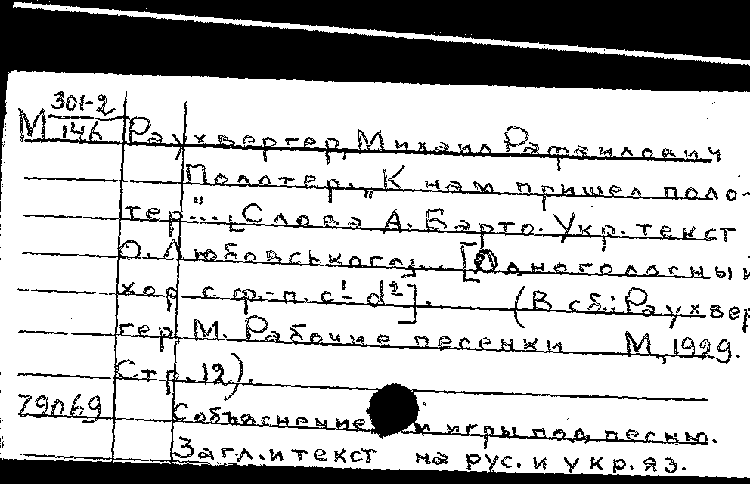 М 301-2/146 Раухвергер, Михаил Рафаилович
Полотер. „К нам пришел поло-
тер"... [Слова А. Барто. Укр. текст
О. Любовського]... [Одноголосный
хор с ф.-п. c¹- d²]. (В сб.: Раухвер
гер М. Рабочие песенки М., 1929.
Стр. 12).
79п69 С объяснением игры под песню.
Загл. и текст на рус. и укр. яз.